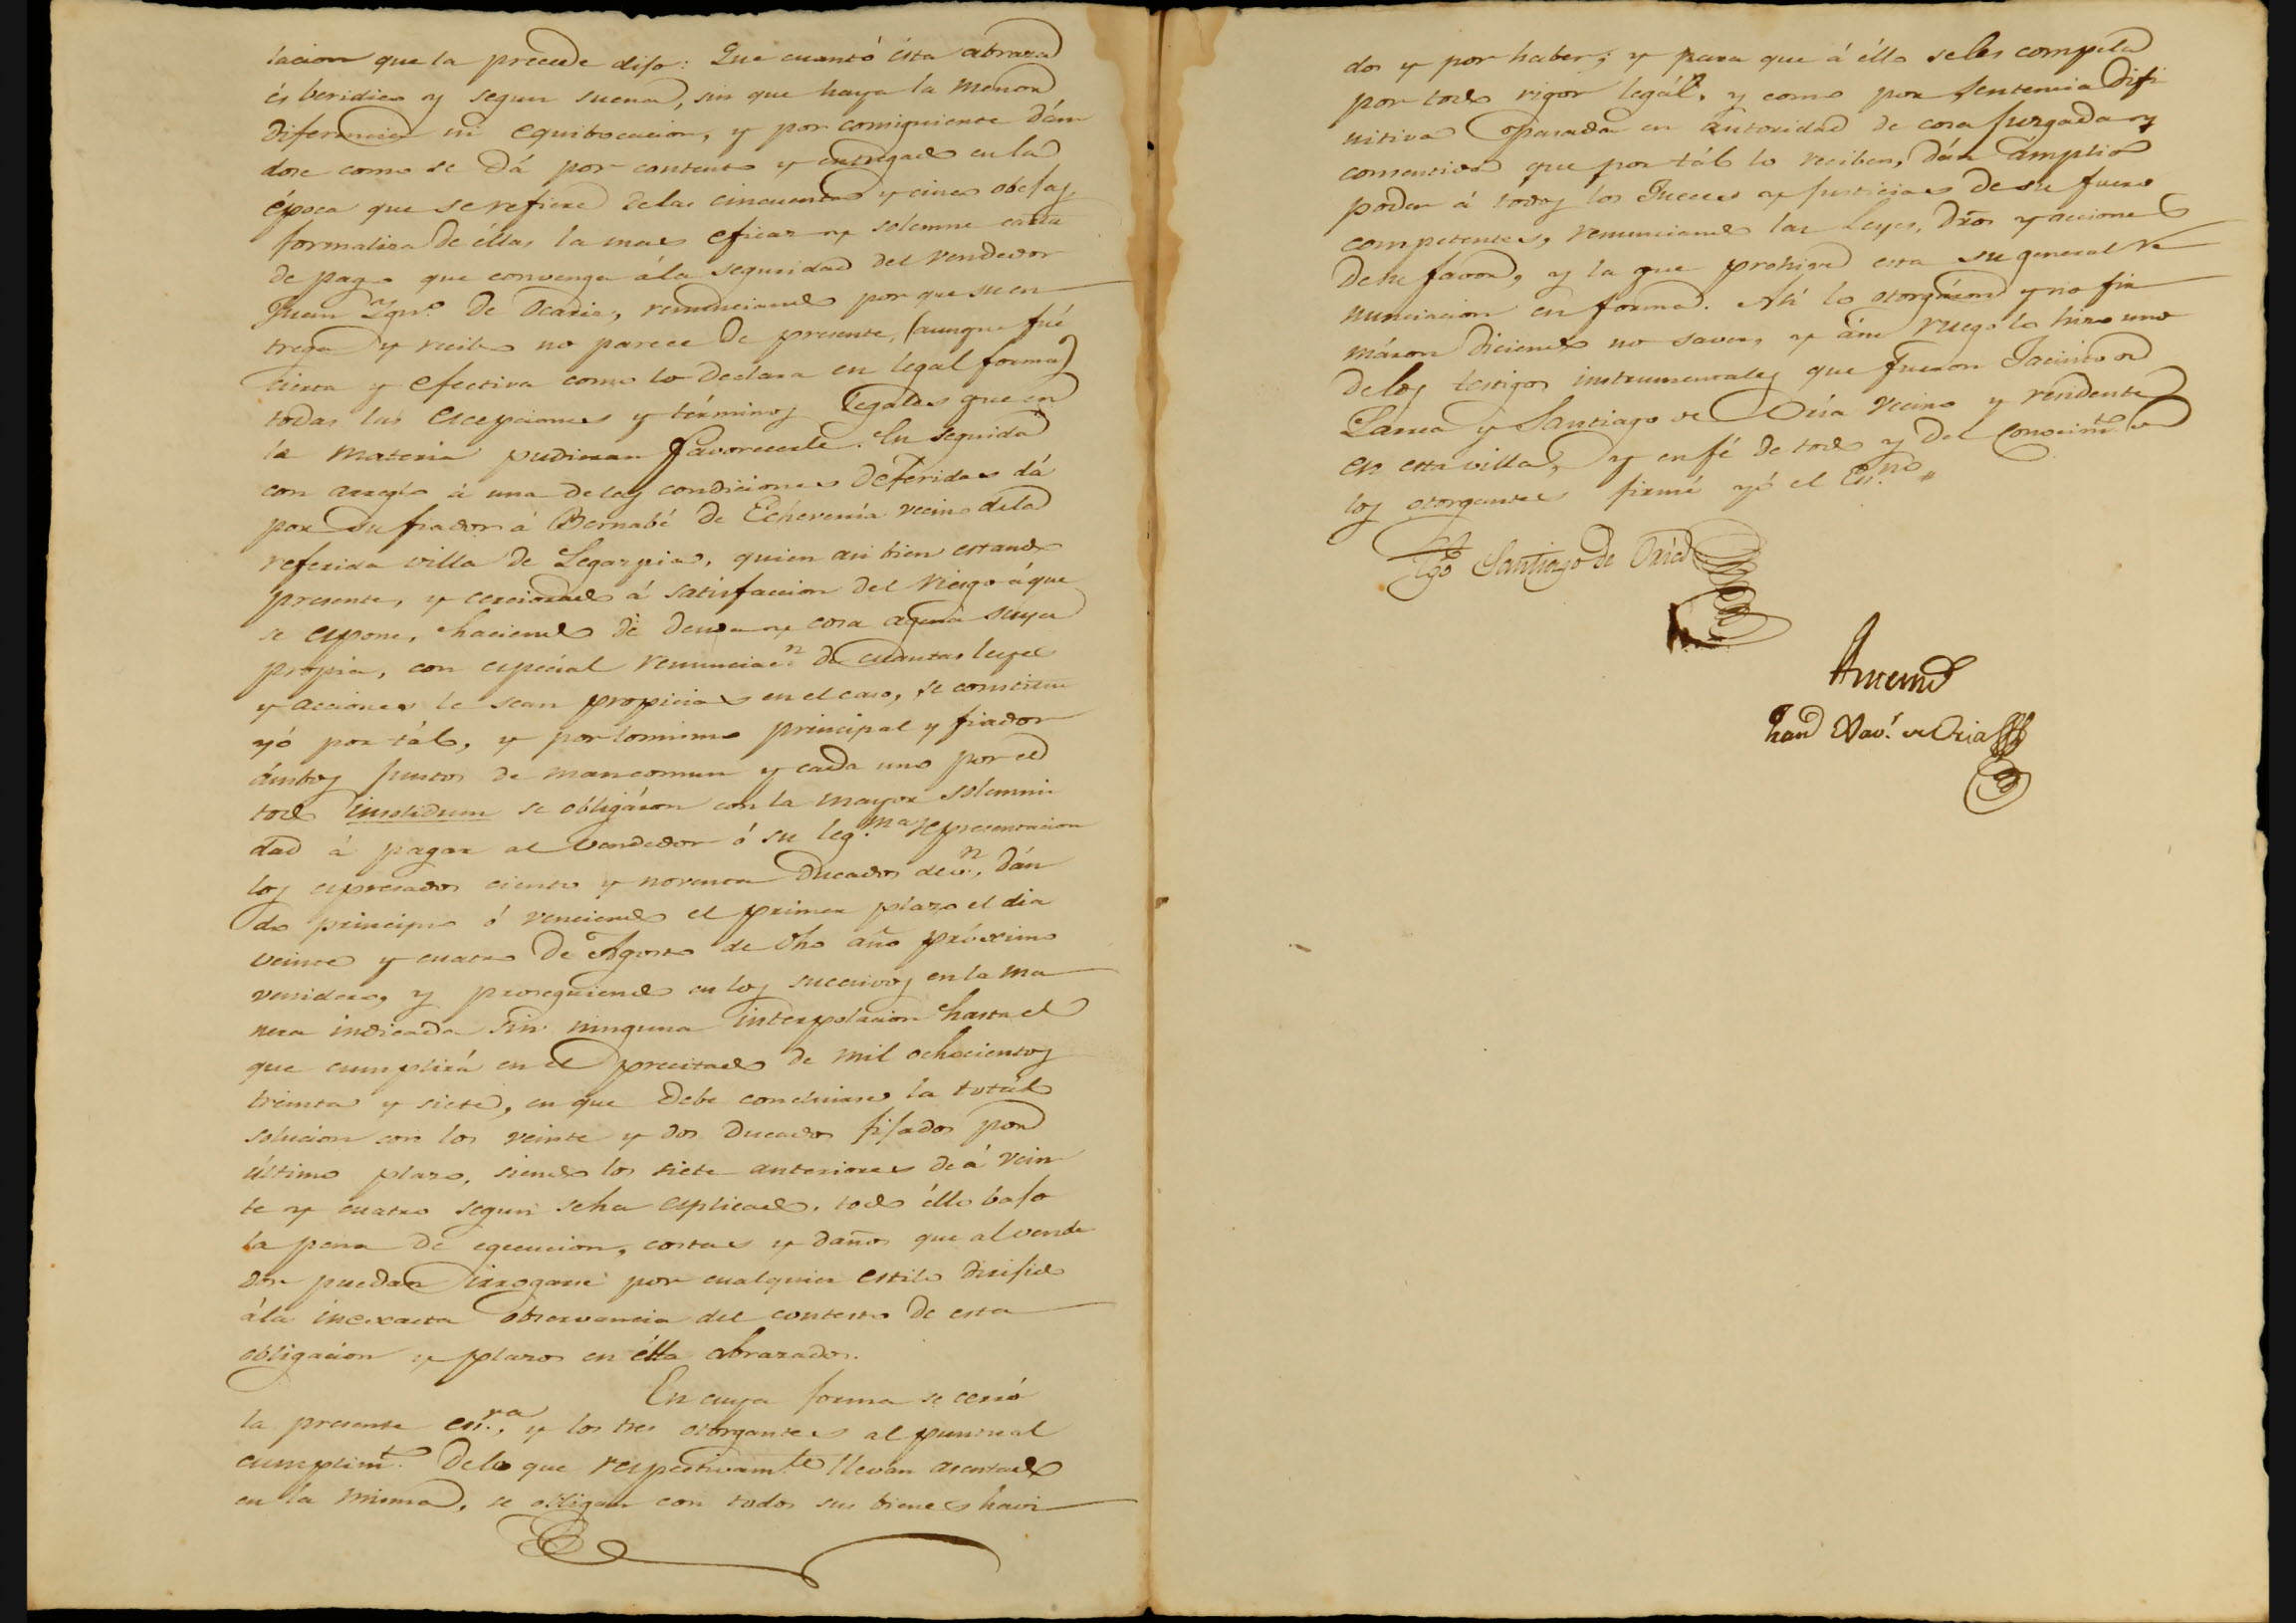 lacion que la precede dijo: Que cuanto ésta abraza
és beridico y segun suena, sin que haya la menor
diferencia ni equibocacion, y por consiguiente dán
dose como se dá por contento y entregado en la
época que se refiere de las cincuenta y cinco obejas,
formaliza de éllas la mas eficaz y solemne carta
de pago que convenga á la seguridad del vendedor
Juan Ygn.º de Ocariz, renunciando por que su en
trega y recibo no parece de presente, (aunque fué
cierta y efectiva como lo declara en legal forma)
todas las escepciones y términos legales que en
la materia pudieran favorecerle. En seguida
con arreglo á una de las condiciones deferidas dá
por su fiador á Bernabé de Echeverría vecino de la
referida villa de Legazpia, quien asi bien estando
presente, y cerciorado á satisfaccion del riesgo á que
se espone, haciendo de deuda y cosa agena suya
propia, con especial renunciac.n de cuantas leyes
y acciones le sean propicias en el caso, se constitu
yó por tál, y por lo mismo principal y fiador
ámbos juntos de mancomun y cada uno por el
todo insolidum se obligáron con la mayor solemni
dad á pagar al vendedor ó su leg.ma representacion
los espresados ciento y noventa ducados de v.n, dán
do principio ó venciendo el primer plazo el dia
veinte y cuatro de Agosto de dho año próximo
venidero, y prosiguiendo en los sucesivos en la ma
nera indicada sin ninguna interpolacion hasta el
que cumplirá en el precitado de mil ochocientos
treinta y siete, en que debe concluirse la totál
solucion con los veinte y dos ducados fijados por
último plazo, siendo los siete anteriores de á vein
te y cuatro segun se ha esplicado. todo éllo bajo
la pena de egecucion, costas y daños que al vende
dor puedan irrogarse por cualquier estilo dirijido
á la inexacta observancia del contesto de esta
obligacion y plazos en élla abrazados.
En cuya forma se cerró
la presente es.ra, y los tres otorgantes al puntual
cumplim.to de lo que respectivam.te llevan asentado
en la misma, se obligan con todos sus bienes havi
dos y por haber; y para que á éllo se les compela
por todo rigor legál, y como por sentencia difi
nitiva pasada en autoridad de cosa juzgada y
consentida que por tál lo reciben, dán ámplio
poder á todos los Jueces y Justicias de su fuero
competentes, renunciando las Leyes, dros y acciones
de su favor, y la que prohive esta su general re
nunciacion en forma. Asi lo otorgáron y no fir
máron diciendo no saver, y á su ruego lo hizo uno
de los testigos instrumentales que fueron Jacinto de
Lasnea y Santiago de Oria vecino y residente
en esta villa, y en fé de todo y del conocim.to de
los otorgantes firmé yó el Es.no
Tgo Santiago de Oria
Antemi
Juan Xav.r de Oria